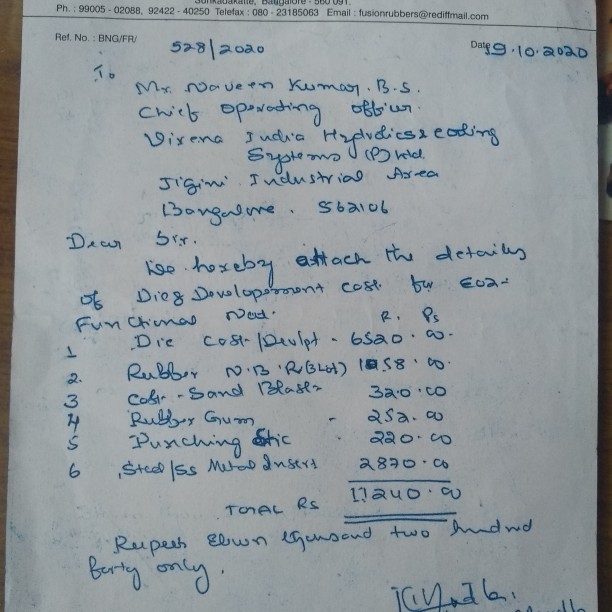 Sunkadakatte, Bangalore - 560 091.
Ph. : 99005 - 02088, 92422 - 40250 Telefax : 080 - 23185063 Email : fusionrubbers@rediffmail.com
Ref. No. : BNG/FR/ 528/2020 Date 19.10.2020
To
Mr. Naveen Kumar. B.S.
Chief operating officer.
India
Systems (P) Ltd.
Jigini Industrial Area
Bangalore. 562106
Dear Sir.
We hereby attach the details
of Dies Developement cost for
Functional
R. Ps
1 Die Cost/Devlpt - 6520.00
2. Rubber N.B.R (Blk) 1058.00
3 Cost - Sand Blast 320.00
4 Rubber Gum - 252.00
5 Punching 220.00
6 Steel/SS Metal Insert 2870.00
TOTAL RS 11240.00
Rupees Eleven thousand two hundred
forty only.